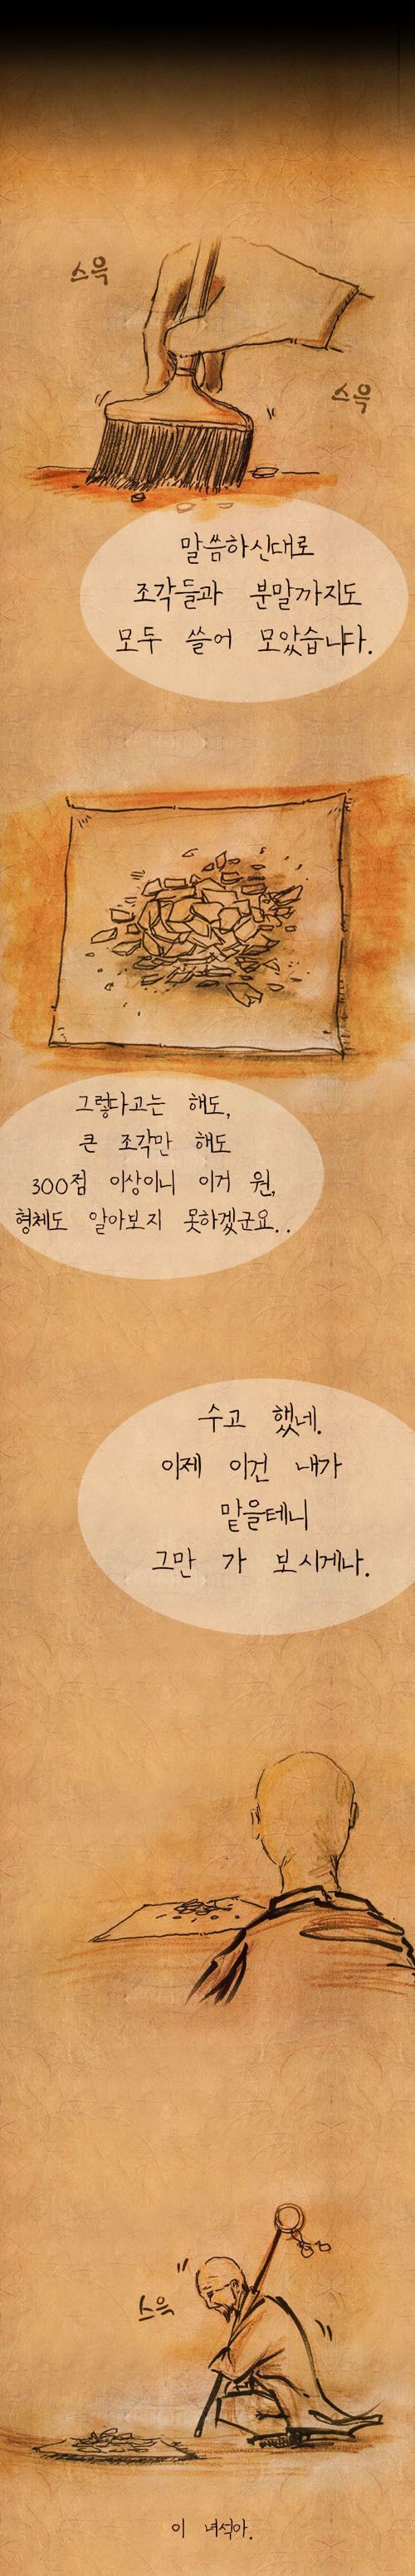 스윽
스윽
말씀하신대로
조각들과 분말까지도
모두 쓸어 모았습니다.
그렇다고는 해도,
큰 조각만 해도
300점 이상이니 이거 원,
형체도 알아보지 못하겠군요..
수고 했네.
이제 이건 내가
맡을테니
그만 가 보시게나.
스윽
이 녀석아.